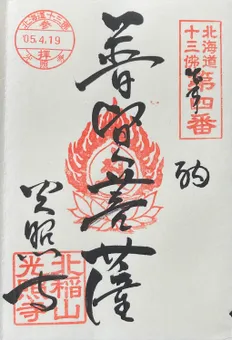 北海道
十三佛
第四番
奉納
普賢菩薩
光照寺
北稲山
光照寺
北海道十三佛
'05.4.19
拝